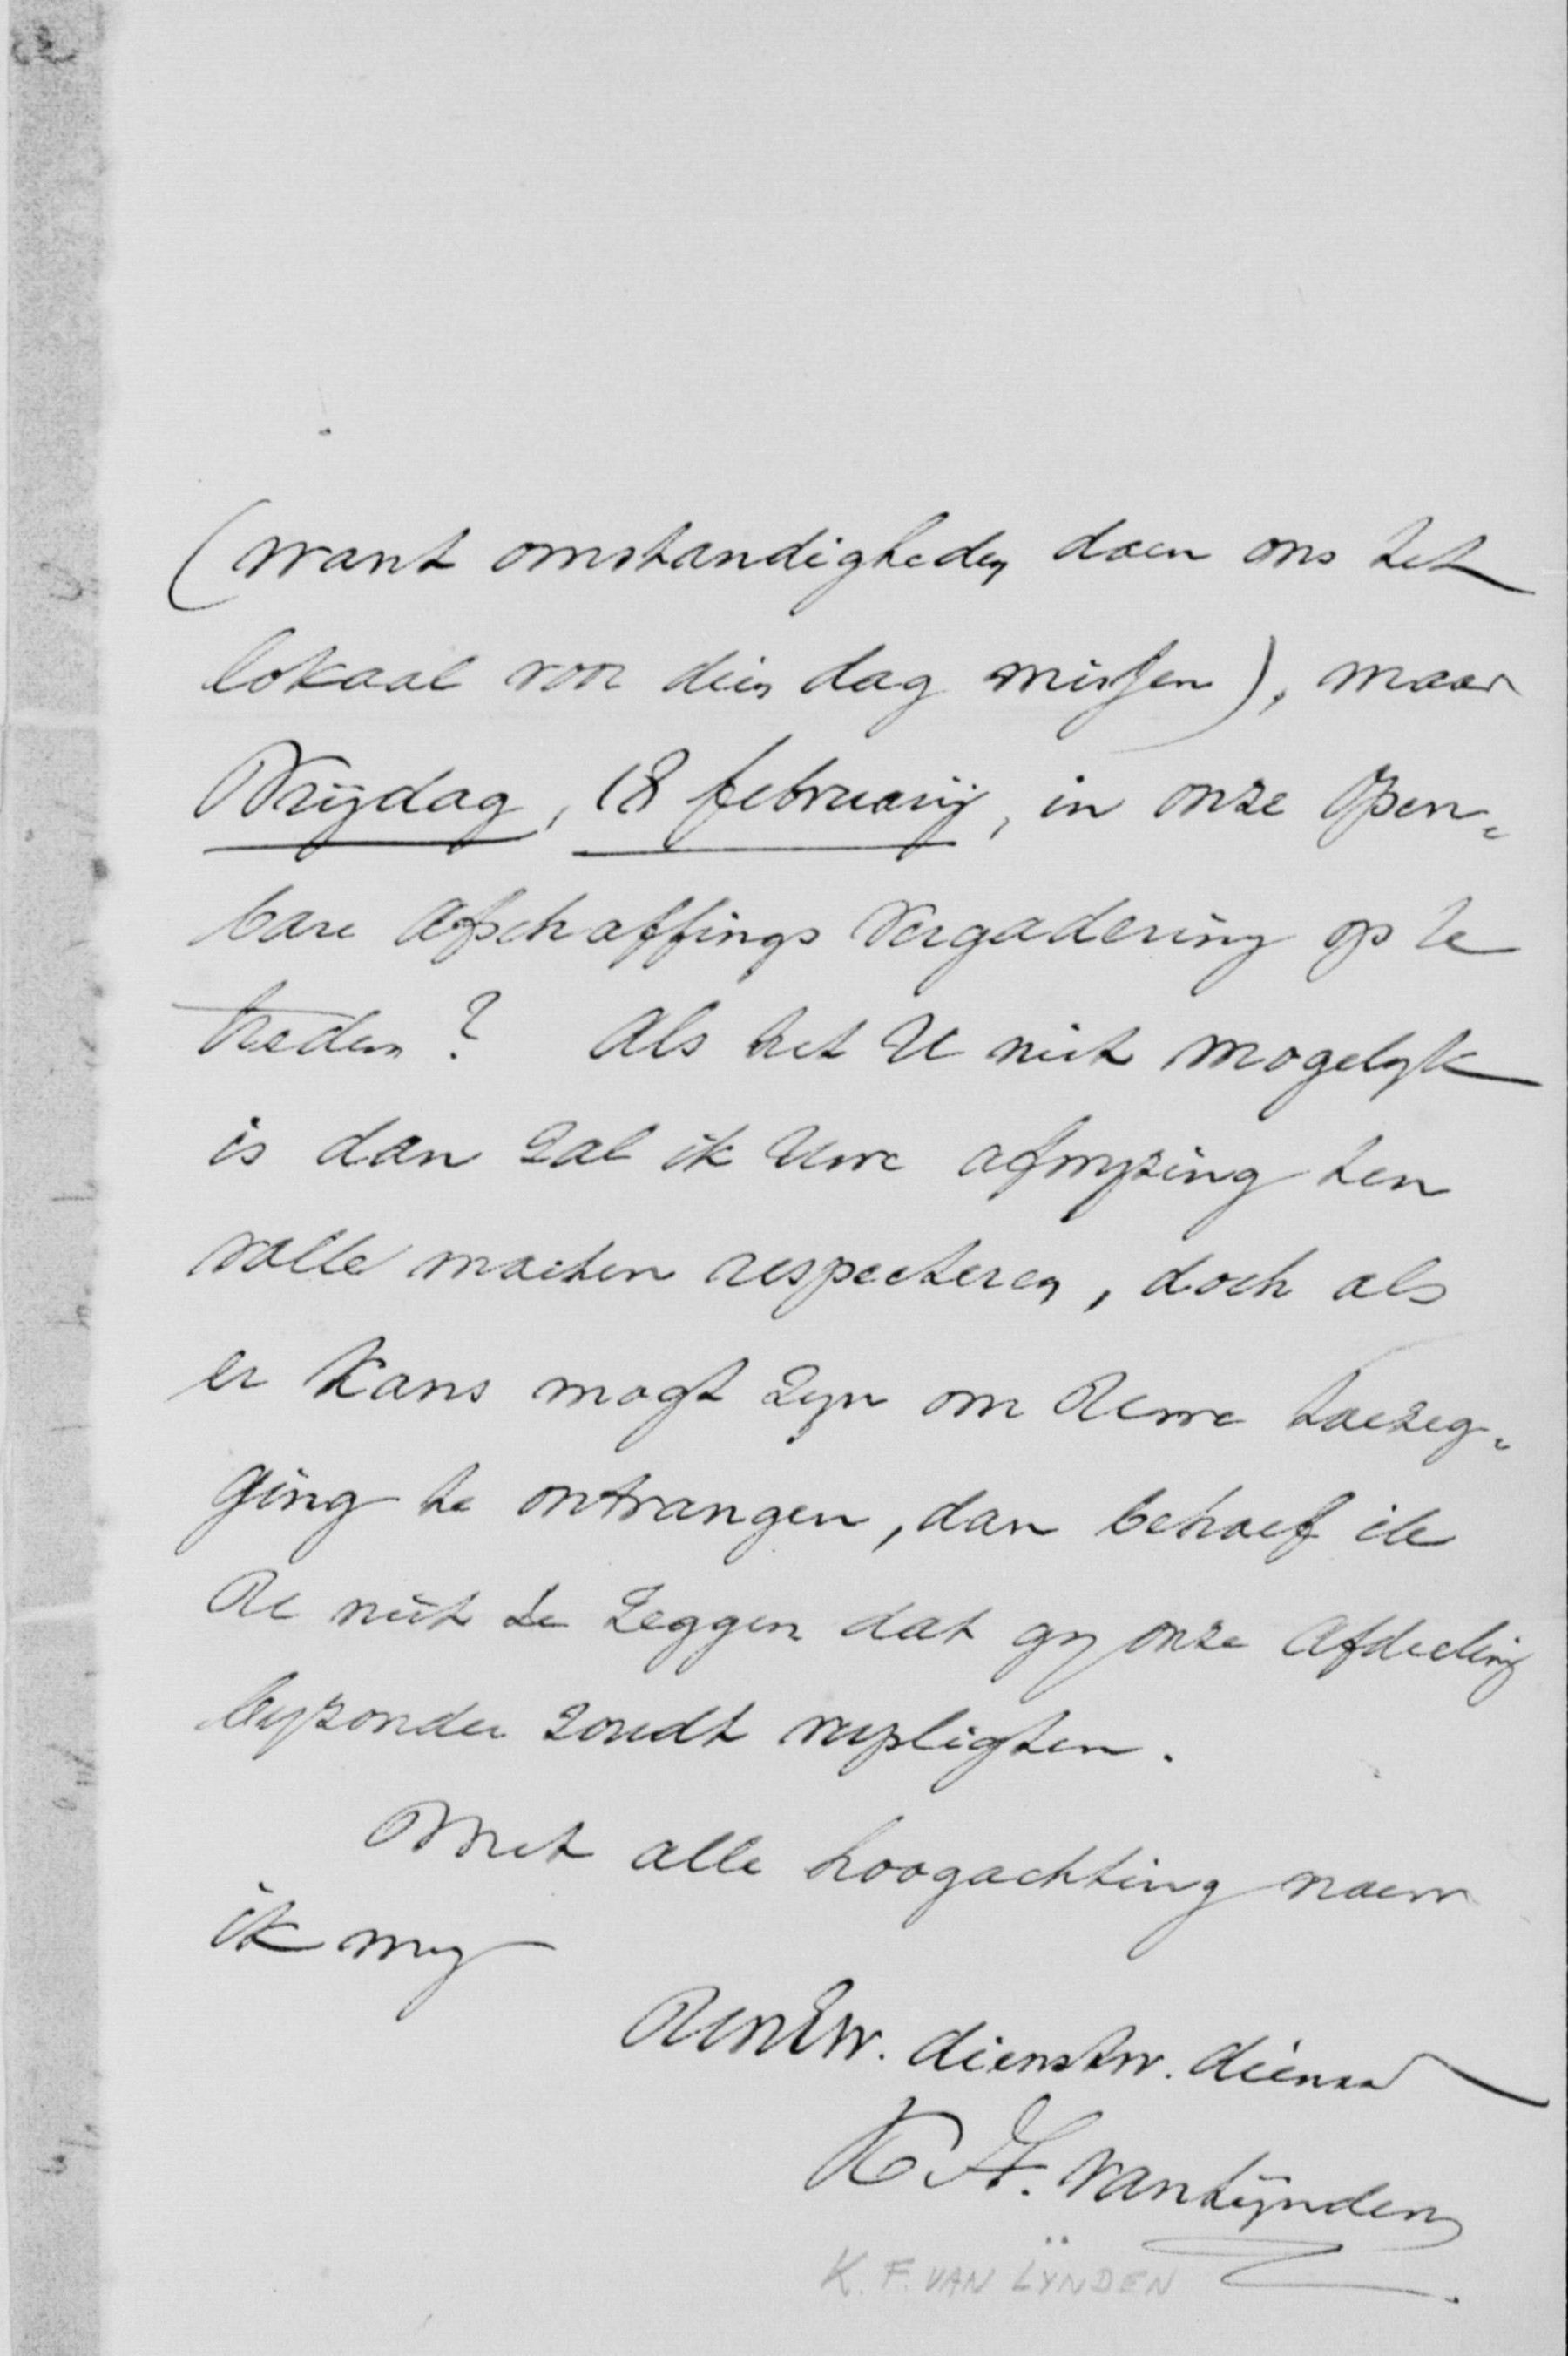 (want omstandigheden doen ons het
lokaal voor dien dag missen), maar
Vrijdag, 18 februarij, in onze open-
bare Afschaffings Vergadering op te
treden? Als het U niet mogelyk
is dan zal ik Uwe afwyzing ten
volle moeten respecteren, doch als
er kans mogt zyn om Uwe toezeg-
ging te ontvangen, dan behoef ik
U niet te zeggen dat gy onze Afdeeling
byzonder zoudt verpligten.
Met alle hoogachting noem
ik my
UwEw. dienstw. dienaar
K F. van Lÿnden
K. F. VAN LŸNDEN